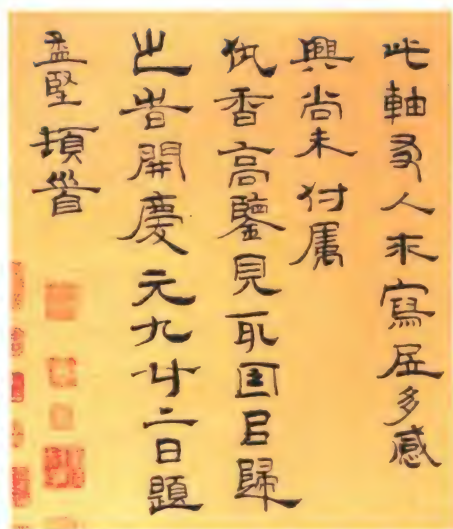 此軸友人求寫多感
興尚未付屬
仇香高鑒見取因㠯歸
之旹開慶元九廿二日題
孟堅頓首